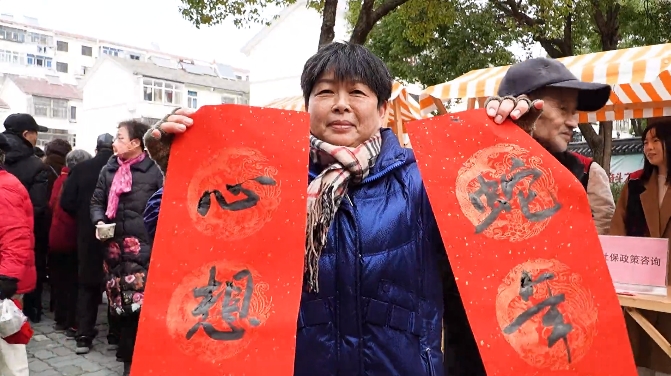 蛇年
心想
社保政策咨询